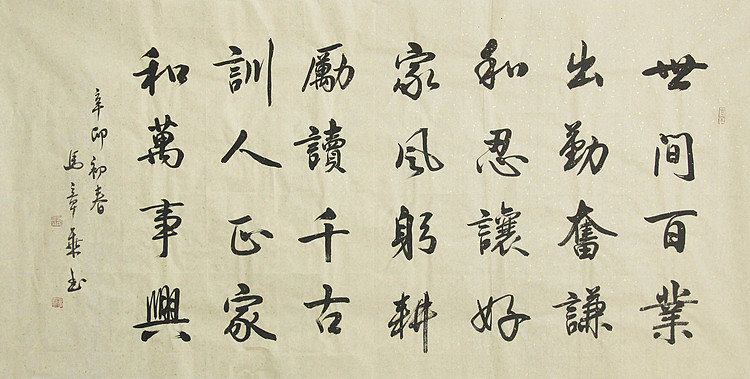 世間百業
出勤奮謙
和忍讓好
家風躬耕
勵讀千古
訓人正家
和萬事興
辛卯初春
馬章乘書